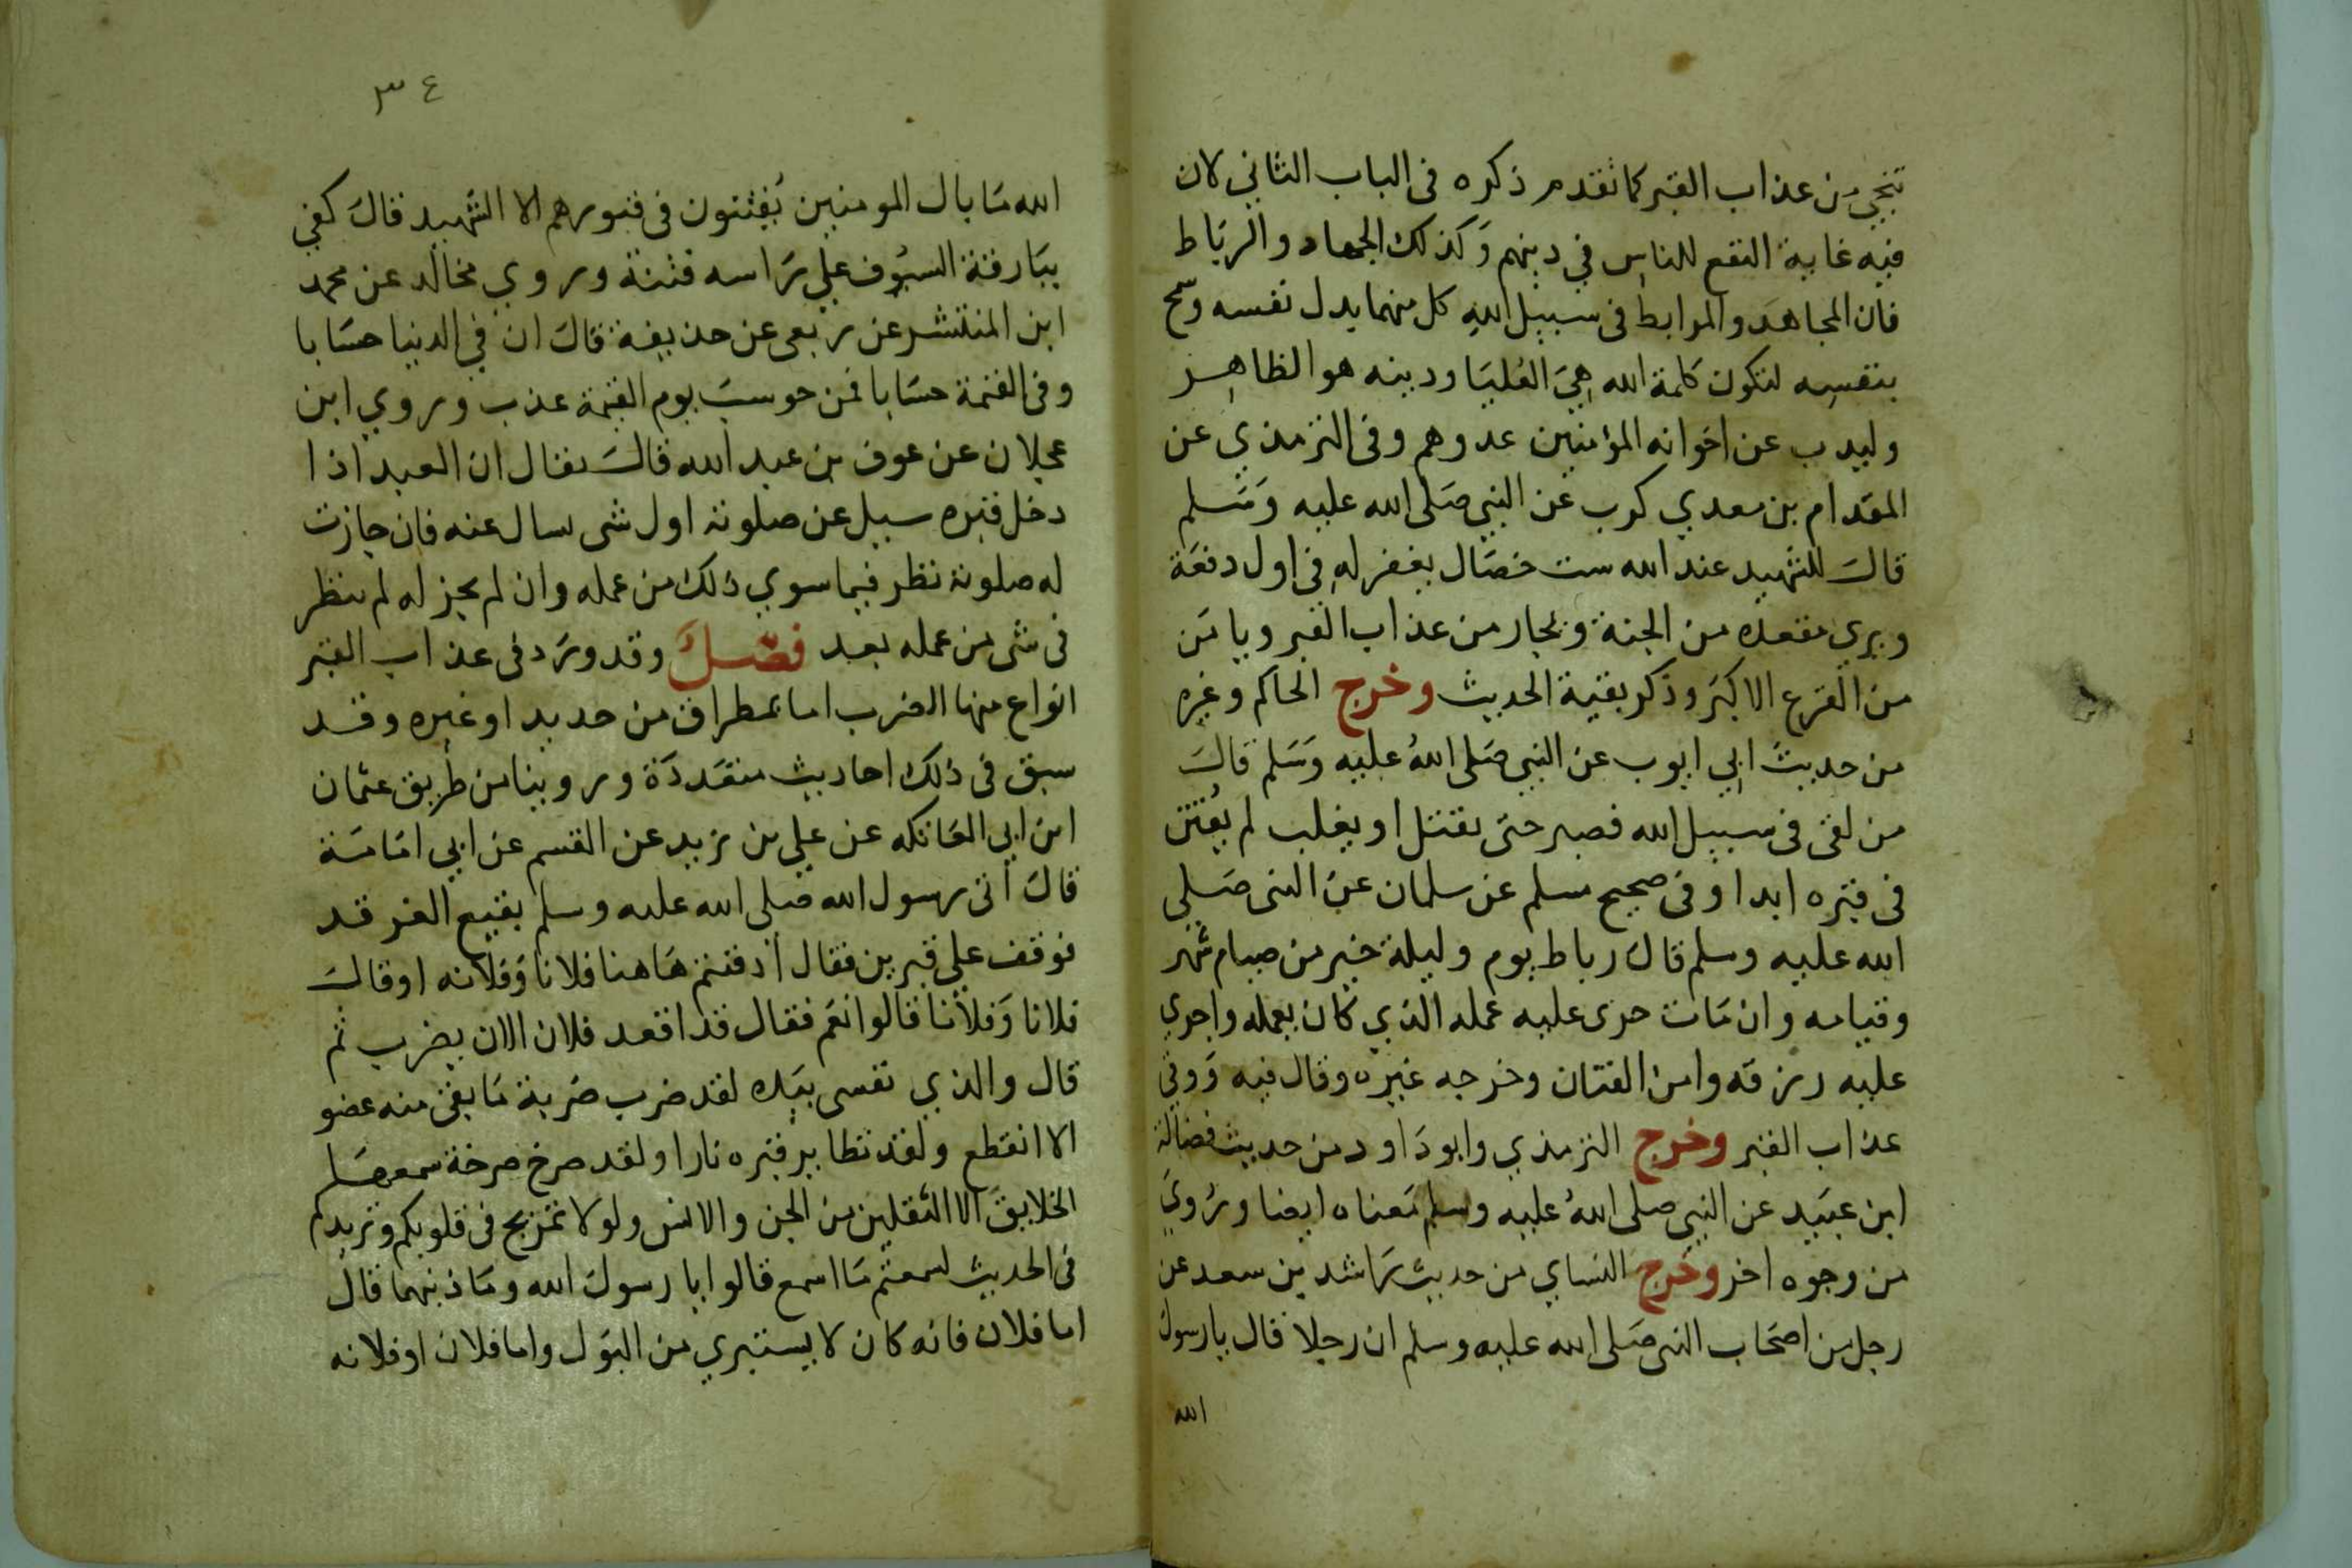 تنجي من عذاب القبر كما تقدم ذكره في الباب الثاني لان
فيه غاية النفع للناس في دينهم وَكذلك الجهاد والرّبَاط
فان المجاهدَ والمرابط في سبيل اللهِ كل منهما بدل نفسه وسمح
بنفسِه لتكون كلمة الله هِيَ العُليَا ودينه هو الظاهِر
وليدب عن اخوانه المؤمنين عدوهم وفي الترمذي عن
المقدام بن معدي كرب عن النبي صَلى الله عليه وَسَلم
قالَ للشهيد عند الله ست خصَال يغفر له في اول دفعَة
ويرى مقعده من الجنة ويجار من عذاب القبر ويامَن
من الفزع الاكبَر وذكر بقية الحديث وخرج الحاكم وغيره
من حديثَ ابي ايوب عن النبي صَلى اللهُ عليه وَسَلم قالَ
من لقى في سبيل الله فصبر حتى يقتل او يغلب لم يُفتن
في قبره ابدا وفي صحيح مسلم عن سلمان عن النبى صَلى
الله عليه وسلم قالَ رباط يوم وليلة خير من صيام شهر
وقيامه وان مَات جرى عليه عمله الذي كان يعمله واجري
عليه رزقه وامن الفتان وخرجه غيره وقال فيه وَوقي
عذاب القبر وخرج الترمذي وابو دَاود من حديث فضالة
ابن عبَيد عن النبي صلى اللهُ عليه وسلم مَعناه ايضا ورُويَ
من وجوه اخر وخرج النساي من حديث رَاشد بن سعد عن
رجل من اصحَاب النبى صَلى الله عليه وسلم ان رجلا قال يا رسولَ
الله
٣٤
الله مَا بال المومنين يُفتنون في قبورهم الا الشهيد قالَ كفي
ببَارقة السيُوف علي رَاسه فتنة وروي مخالد عن محمد
ابن المنتشر عن ربعى عن حذيفة قالَ ان في الدنيا حسَابا
وفي القيمة حسَابا فمن حوسبَ يوم القيمة عذب وروي ابن
عجلان عن عوف بن عبد الله قالَ يقال ان العبد اذا
دخل قبره سيل عن صلوته اول شى يسال عنه فان جازت
له صلوته نظر فيما سوي ذلك من عمله وان لم يجز له لم ينظر
في شى من عمله بعد فصْلَ وقد ورَد في عذاب القبر
انواع منها الضرب اما بمطراق من حديد او غيره وقد
سبق في ذلك احاديث متعَددَة وروينا من طريق عثمان
ابن ابي العَاتكه عن علي بن زيد عن القسم عن ابي امَامَة
قالَ أتى رسول الله صلى الله عليه وسلم بقيع الغرقد
فوقف علي قبرين فقال أدفنتم هَاهنا فلانا وَفلانه او قالَ
فلانا وَفلانا قالوا نعَم فقال قد اقعد فلان الان يضرب ثم
قال والذي نفسى بيَده لقد ضرب ضربة مَا بقى منه عضو
الا انقطع ولقد تطاير قبره نارا ولقد صرخ صرخة سمعهَا
الخلايقَ الا الثقلين من الجن والانس ولولا تمزيج في قلوبكم وتزيدكم
في الحديث لسمعتم مَا اسمع قالوا يا رسولَ الله ومَا ذنبهما قال
اما فلان فانه كان لا يستبري من البَول واما فلان او فلانه